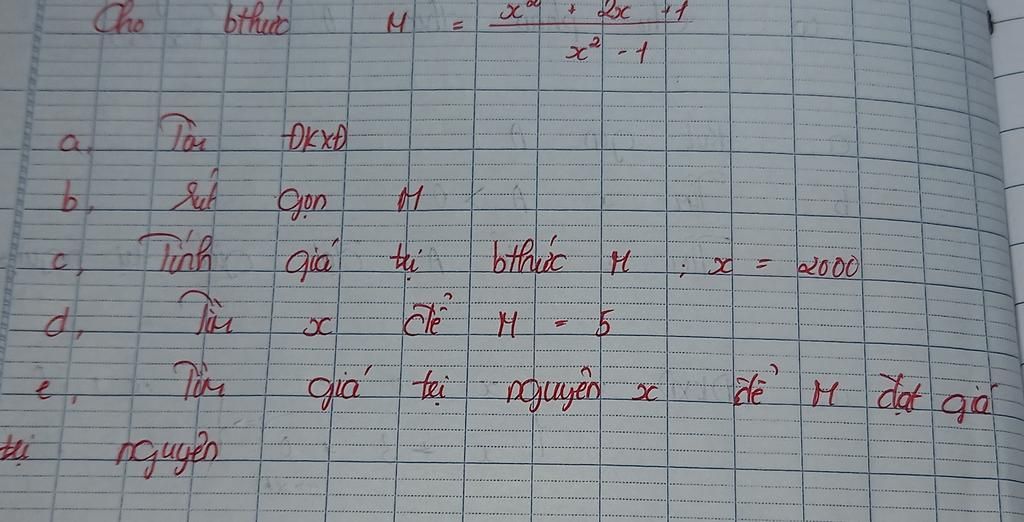 Cho bthức M = x² + 2x + 1 / x² - 1
a, Tìm ĐKXĐ
b, Rút gọn M
c, Tính giá trị bthức M : x = 2000
d, Tìm x để M = 5
e, Tìm giá trị nguyên x để M đạt giá
trị nguyên